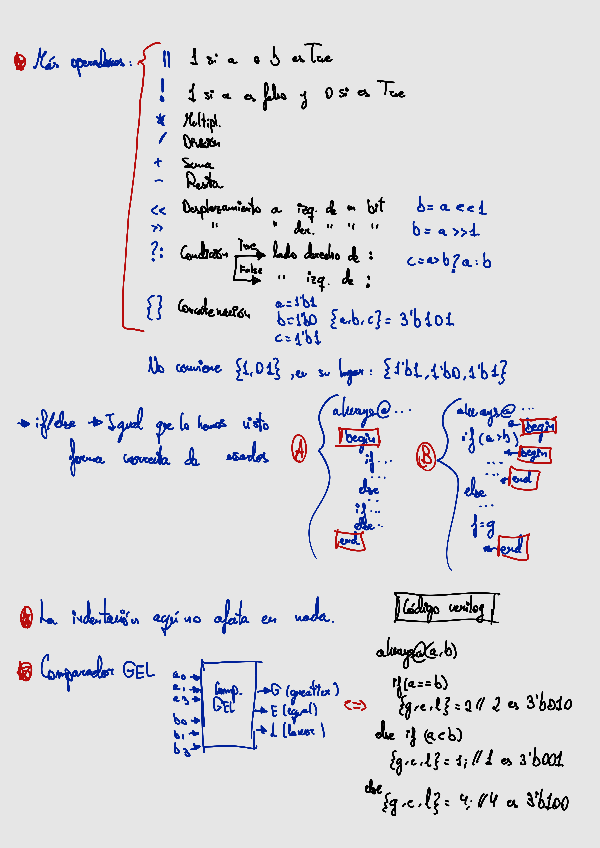 Más operadores:
|| 1 si a o b es True
! 1 si a es falso y 0 si es True
* Multipl.
/ División
+ Suma
- Resta
<< Desplazamiento a izq. de un bit b = a << 1
>> " " der. " " " b = a >> 1
?: Condición True lado derecho de : c = a>b ? a : b
False " izq. de :
{} Concatenación a = 1'b1
b = 1'b0 {a,b,c} = 3'b101
c = 1'b1
No conviene {1,01}, en su lugar: {1'b1, 1'b0, 1'b1}
→ if/else → Igual que lo hemos visto
forma correcta de usarlos
A
always@ ...
begin
if ...
...
else
...
if ...
else ...
end
B
always@ ...
begin
if (a>b)
begin
...
... end
else
...
f=g
end
La indentación aquí no afecta en nada.
Código verilog
Comparador GEL
a0
a1
a3
b0
b1
b3
Comp.
GEL
G (greatter)
E (equal)
L (lower)
<=>
always@(a,b)
if(a==b)
{g,e,l} = 2 // 2 es 3'b010
else if (a<b)
{g,e,l} = 1; // 1 es 3'b001
else
{g,e,l} = 4; // 4 es 3'b100